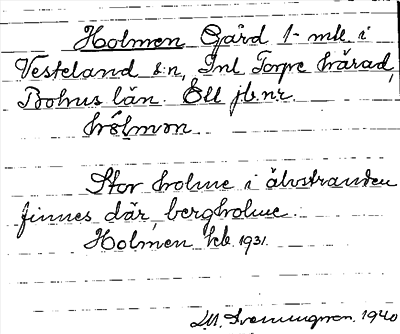 Holmen Gård 1 mtl i
Vesteland s:n, Inl Torpe härad,
Bohus län. Ett jb.nr.
hólmən
Stor holme i älvstranden
finnes där, bergholme.
Holmen hb. 1931.
1940